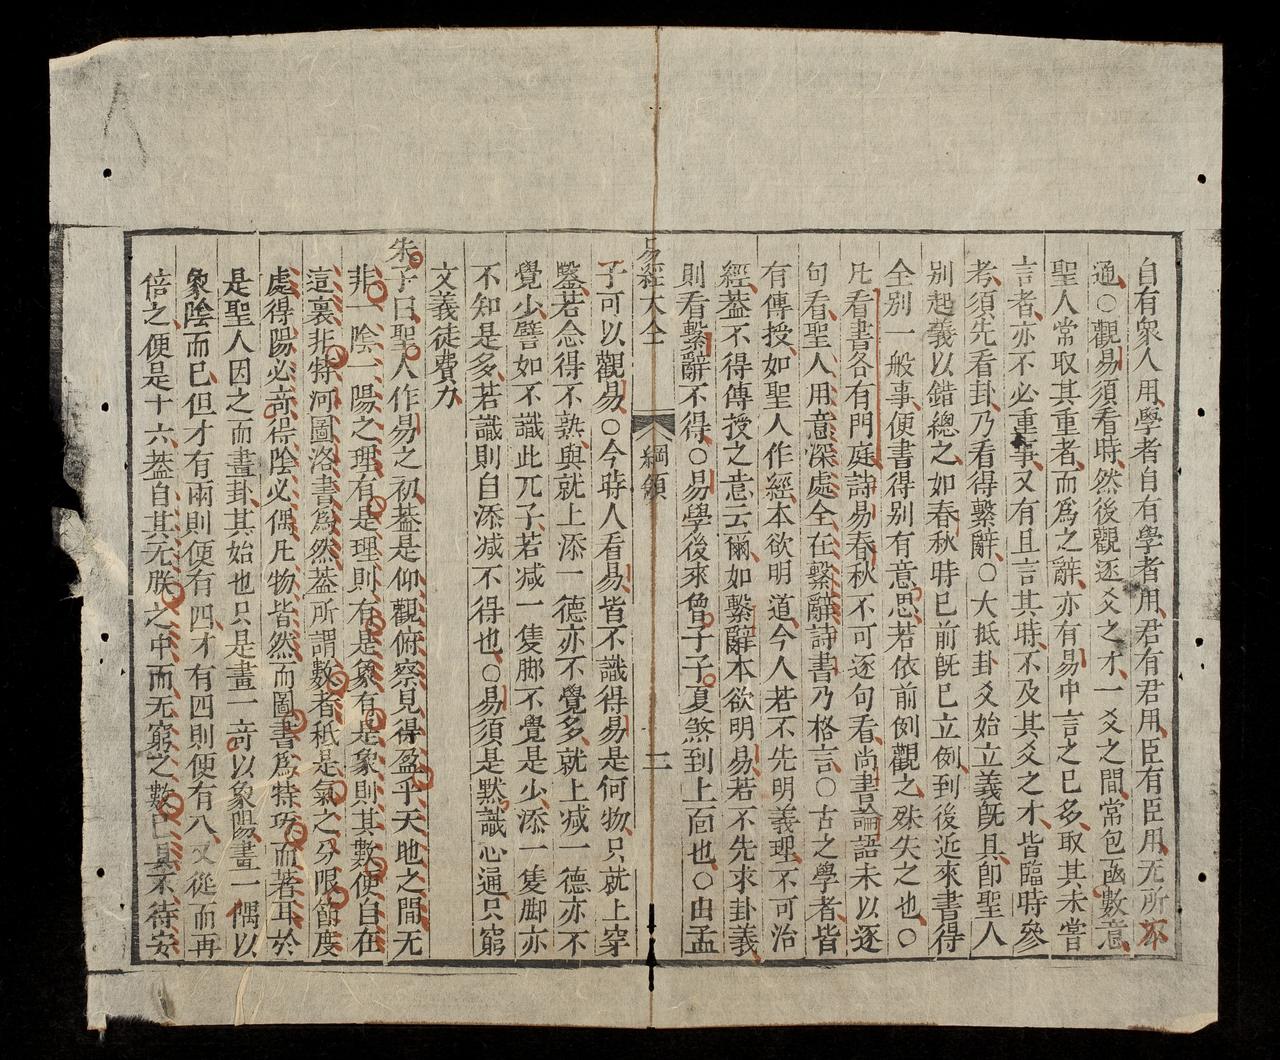 自有衆人用學者自有學者用君有君用臣有臣用无所不
通○觀易須看時然後觀逐爻之才一爻之間常包涵數意
聖人常取其重者而爲之辭亦有易中言之已多取其未嘗
言者亦不必重事又有且言其時不及其爻之才皆臨時參
考須先看卦乃看得繫辭○大抵卦爻始立義旣具卽聖人
別起義以錯總之如春秋時已前旣已立例到後近來書得
全別一般事便書得别有意思若依前例觀之殊失之也○
凡看書各有門庭詩易春秋不可逐句看尚書論語未以逐
句看聖人用意深處全在繫辭詩書乃格言○古之學者皆
有傳授如聖人作經本欲明道今人若不先明義理不可治
經蓋不得傳授之意云爾如繫辭本欲明易若不先求卦義
則看繫辭不得○易學後來曾子子夏煞到上面也○由孟
易經大全 綱領 二
子可以觀易○今時人看易皆不識得易是何物只就上穿
鑿若念得不熟與就上添一德亦不覺多就上減一德亦不
覺少譬如不識此兀子若減一隻脚不覺是少添一隻脚亦
不知是多若識則自添減不得也○易須是黙識心通只窮
文義徒費力
朱子曰聖人作易之初蓋是仰觀俯察見得盈乎天地之間无
非一陰一陽之理有是理則有是象有是象則其數便自在
這裏非特河圖洛書爲然蓋所謂數者秪是氣之分限節度
處得陽必竒得陰必偶凡物皆然而圖書爲特巧而著耳於
是聖人因之而畫卦其始也只是畫一竒以象陽畫一偶以
象陰而已但才有兩則便有四才有四則便有八又從而再
倍之便是十六蓋自其无朕之中而无窮之數已具不待安